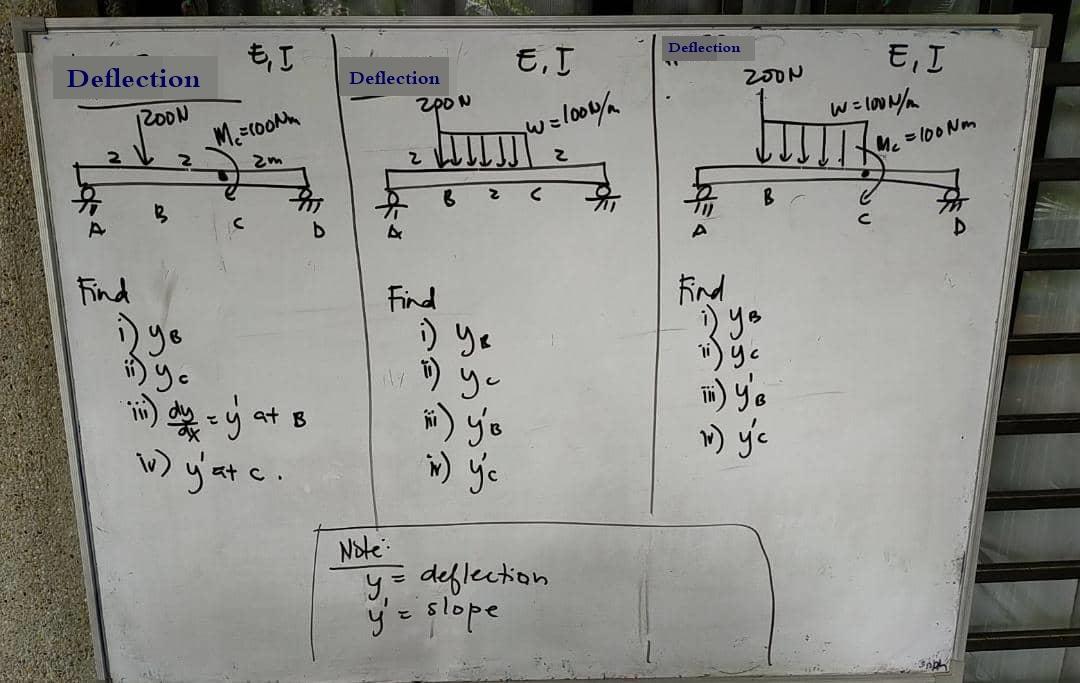 Deflection
E, I
200N
Mc=100Nm
2
2
2m
A
B
C
D
Find
i) yB
ii) yc
iii) dy/dx = y' at B
iv) y' at c.
Deflection
E, I
200N
w=100N/m
2
2
B
2
C
A
Find
i) yB
ii) yc
iii) y'B
iv) y'c
Deflection
E, I
200N
W=100N/m
Mc=100Nm
B
C
A
D
Find
i) yB
ii) yc
iii) y'B
iv) y'c
Note:
y = deflection
y' = slope